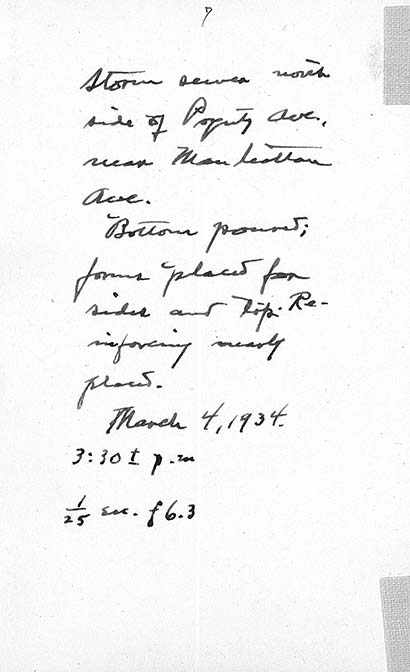 7
Storm sewer north
side of Poyntz Ave.,
near Manhattan
Ave.
Bottom poured;
forms placed for
sides and top. Re-
inforcing nearly
placed.
March 4, 1934.
3:30 ± p.m
1/25 sec. f 6.3